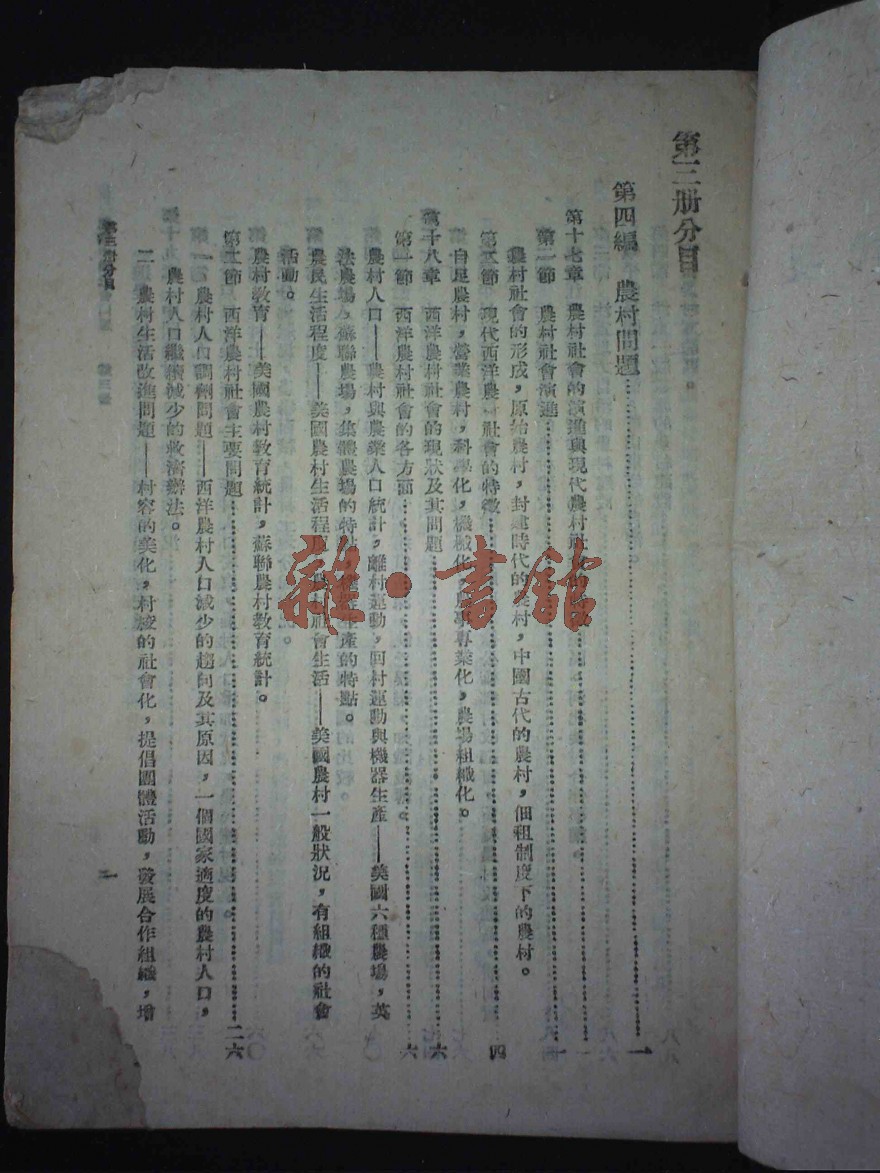 第三册分目
第四編　農村問題……一
第十七章　農村社會的演進與現代農村社會的特徵……一
第一節　農村社會演進……一
農村社會的形成，原始農村，封建時代的農村，中國古代的農村，佃租制度下的農村。
第二節　現代西洋農村社會的特徵……四
自足農村，營業農村，科學化，機械化，農事專業化，農場組織化。
第十八章　西洋農村社會的現狀及其問題……六
第一節　西洋農村社會的各方面……六
農村人口——農村與農業人口統計，離村運動，回村運動與機器生產——美國六種農場，英
法農場，蘇聯農場，集體農場的特點，生產的特點。
農民生活程度——美國農村生活程度，農村社會生活——美國農村一般狀況，有組織的社會
活動。
農村教育——美國農村教育統計，蘇聯農村教育統計。
第二節　西洋農村社會主要問題……二六
一、農村人口調劑問題——西洋農村人口減少的趨向及其原因，一個國家適度的農村人口，
農村人口繼續減少的救濟辦法。
二、農村生活改進問題——村容的美化，村校的社會化，提倡團體活動，發展合作組織，增
第三册分目
一
雜·書館